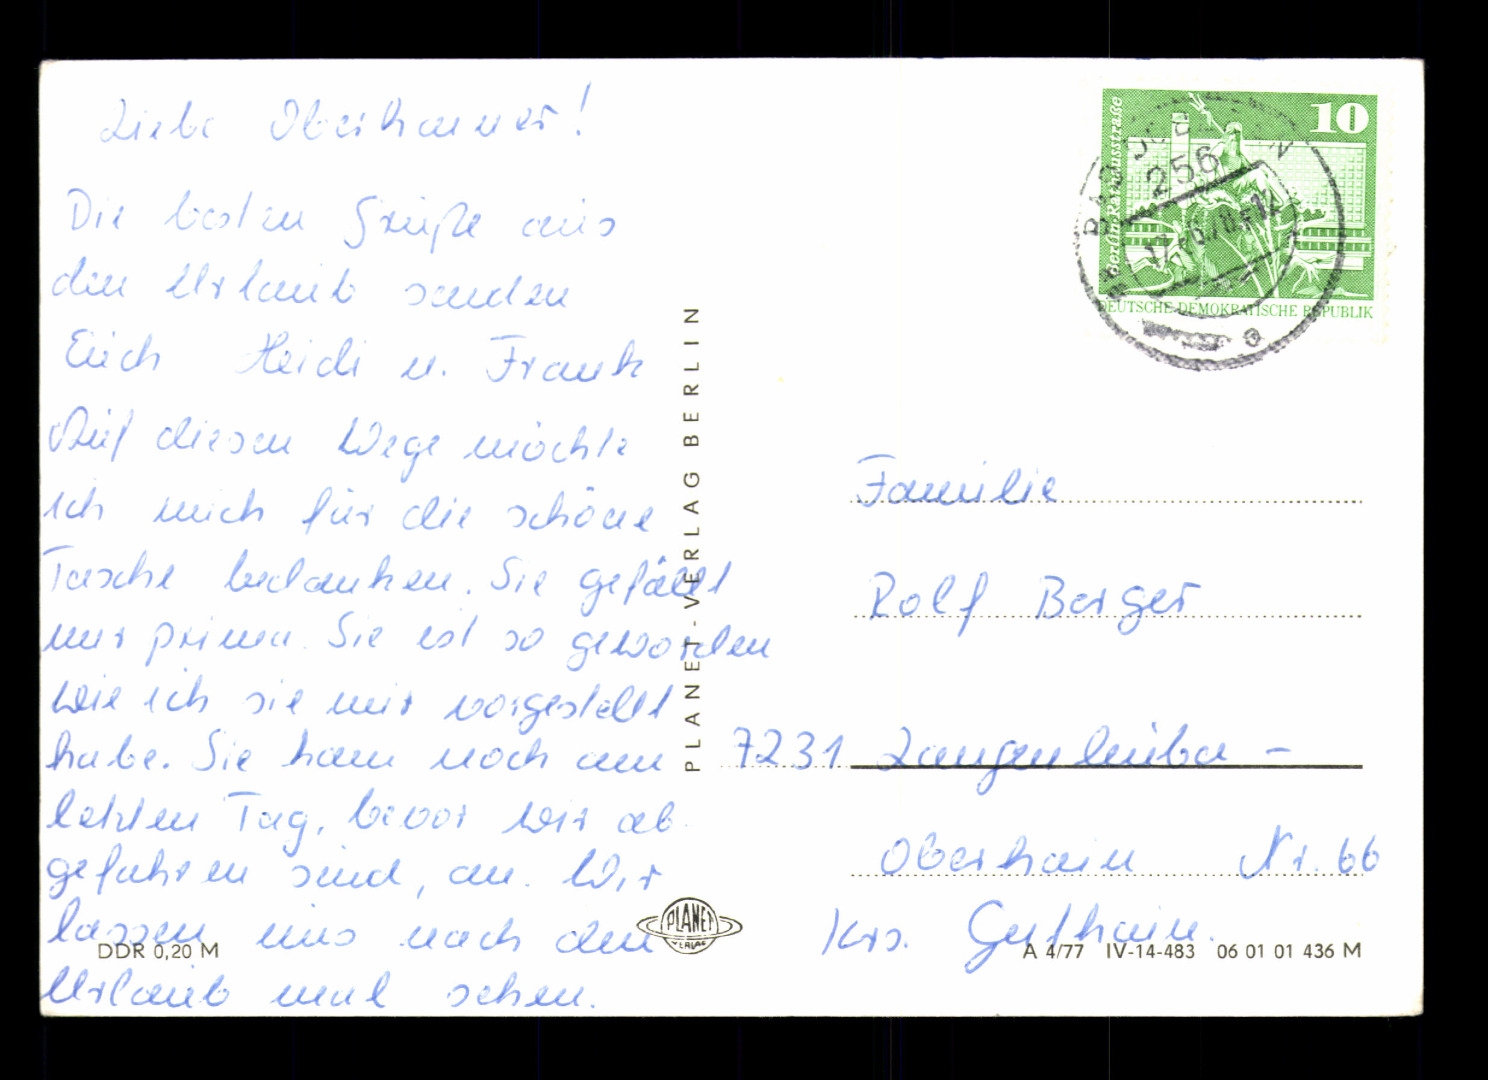 Liebe Oberhainer!
Die besten Grüße aus
den Urlaub senden
Euch Heidi u. Frank
Auf diesen Wege möchte
ich mich für die schöne
Tasche bedanken. Sie gefällt
mir prima. Sie ist so geworden
wie ich sie mir vorgestellt
habe. Sie kam noch am
letzten Tag, bevor wir ab
gefahren sind, an. Wir
lassen uns nach den
Urlaub mal sehen.
DDR 0,20 M
PLANET-VERLAG BERLIN
PLANET
VERLAG
10
Berlin, Rathausstraße
DEUTSCHE DEMOKRATISCHE REPUBLIK
256
Familie
Rolf Berger
7231 Langenleuba -
Oberhain Nr. 66
Krs. Geithain.
A 4/77 IV-14-483 06 01 01 436 M